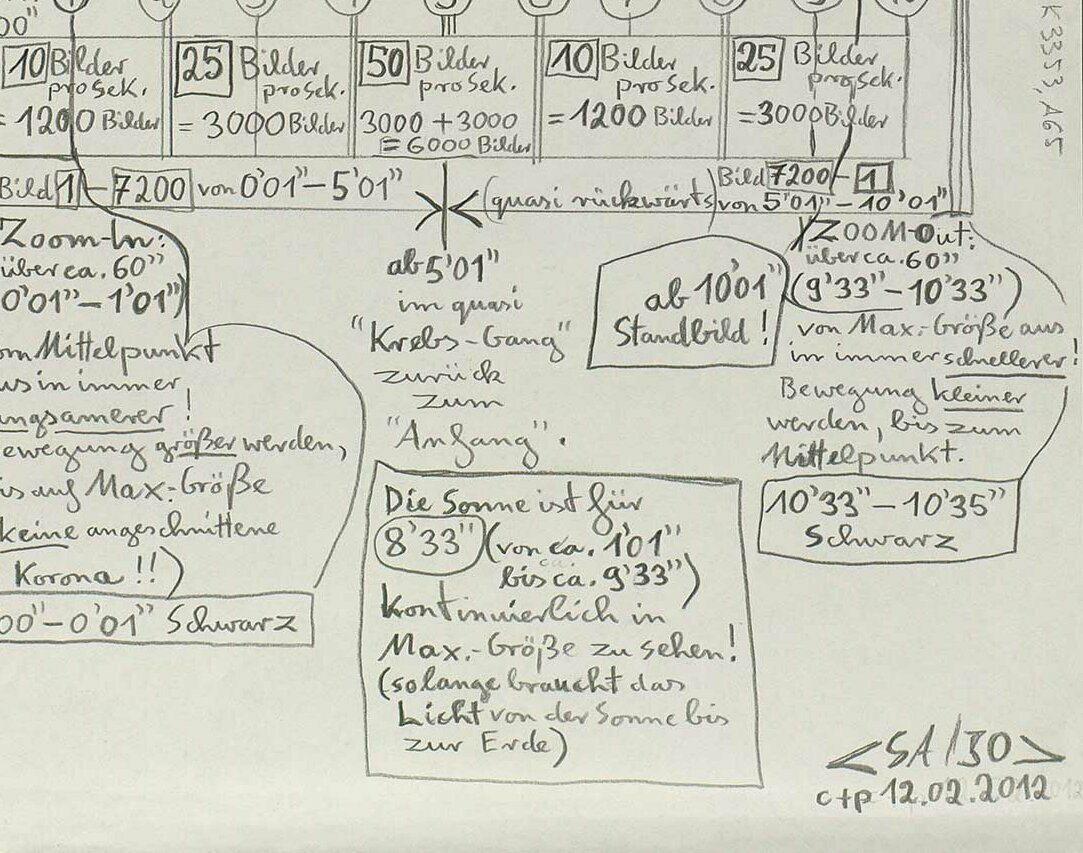 00"
10 Bilder pro Sek.
= 1200 Bilder
25 Bilder pro Sek.
= 3000 Bilder
50 Bilder pro Sek.
3000 + 3000
= 6000 Bilder
10 Bilder pro Sek.
= 1200 Bilder
25 Bilder pro Sek.
= 3000 Bilder
K3353, A65
Bild 1 – 7200 von 0'01" – 5'01"
(quasi rückwärts)
Bild 7200 – 1
von 5'01" – 10'01"
Zoom-In:
über ca. 60"
0'01" – 1'01")
om Mittelpunkt
us in immer
ngsamerer!
ewegung größer werden,
is auf Max.-Größe
keine angeschnittene
Korona!!)
00" – 0'01" Schwarz
ab 5'01"
im quasi
"Krebs-Gang"
zurück
zum
"Anfang".
Die Sonne ist für
8'33" (von ca. 1'01"
bis ca. 9'33")
Kontinuierlich in
Max.-Größe zu sehen!
(solange braucht das
Licht von der Sonne bis
zur Erde)
ab 10'01"
Standbild!
ZOOM-Out:
über ca. 60"
(9'33" – 10'33")
von Max.-Größe aus
in immer schnellerer!
Bewegung kleiner
werden, bis zum
Mittelpunkt.
10'33" – 10'35"
Schwarz
<SA/30>
c+p 12.02.2012